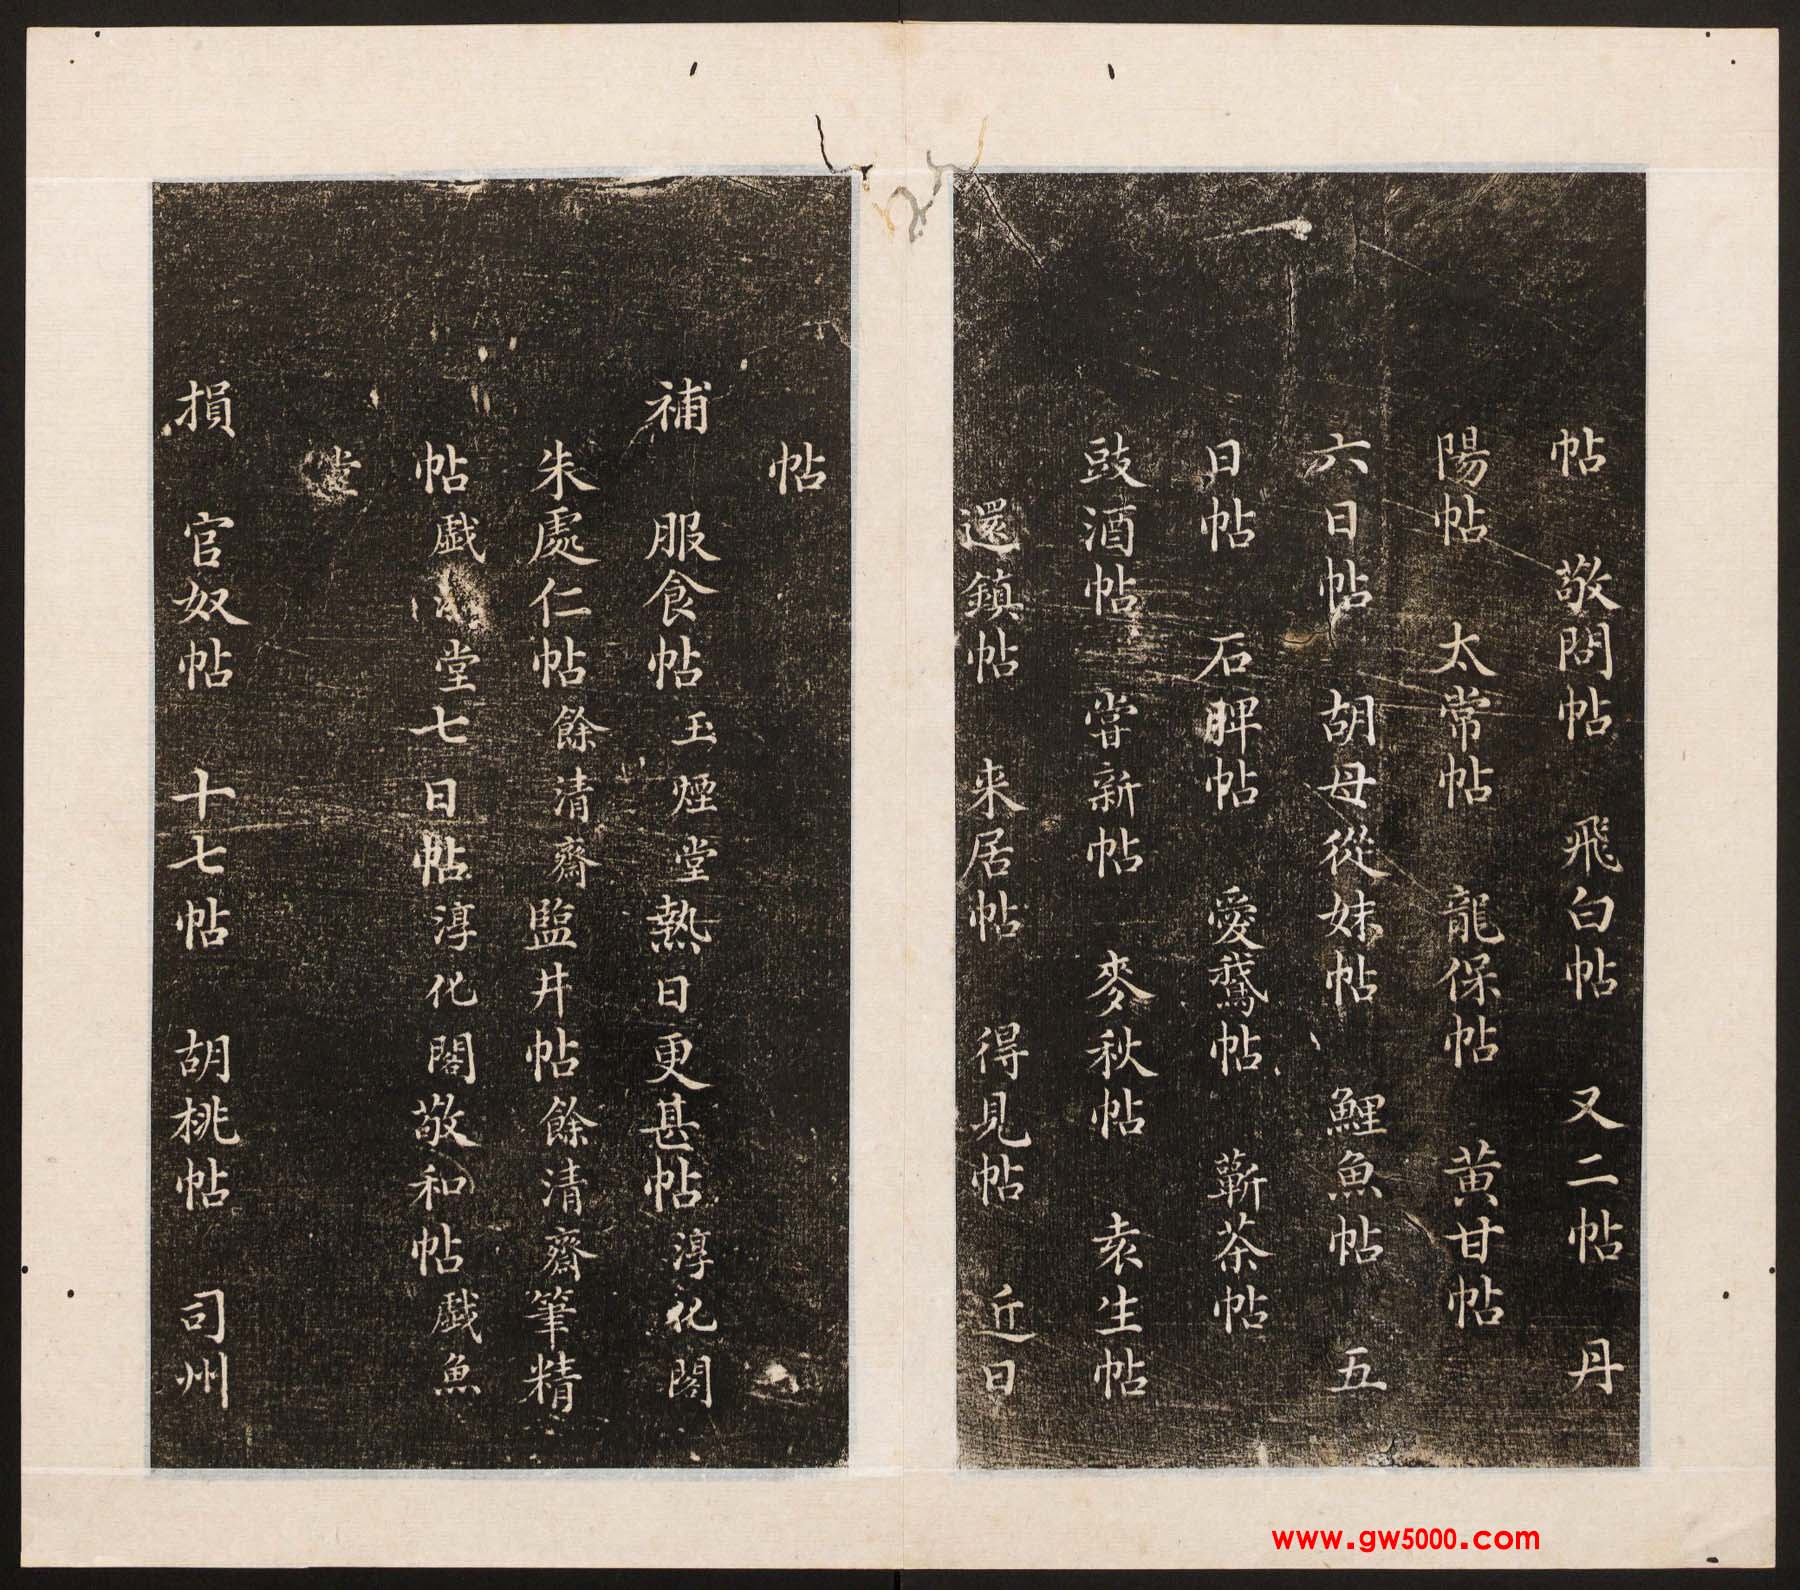 帖　敬問帖　飛白帖　又二帖　丹
陽帖　太常帖　龍保帖　黄甘帖
六日帖　胡母從妹帖　鯉魚帖　五
日帖　石脾帖　愛鵞帖　蘄茶帖
豉酒帖　甞新帖　麥秋帖　袁生帖
還鎮帖　来居帖　得見帖　近日
帖
補　服食帖玉煙堂熱日更甚帖淳化閣
朱處仁帖餘清齋監井帖餘清齋筆精
帖戯鴻堂七日帖淳化閣敬和帖戯魚
堂
損　官奴帖　十七帖　胡桃帖　司州
www.gw5000.com